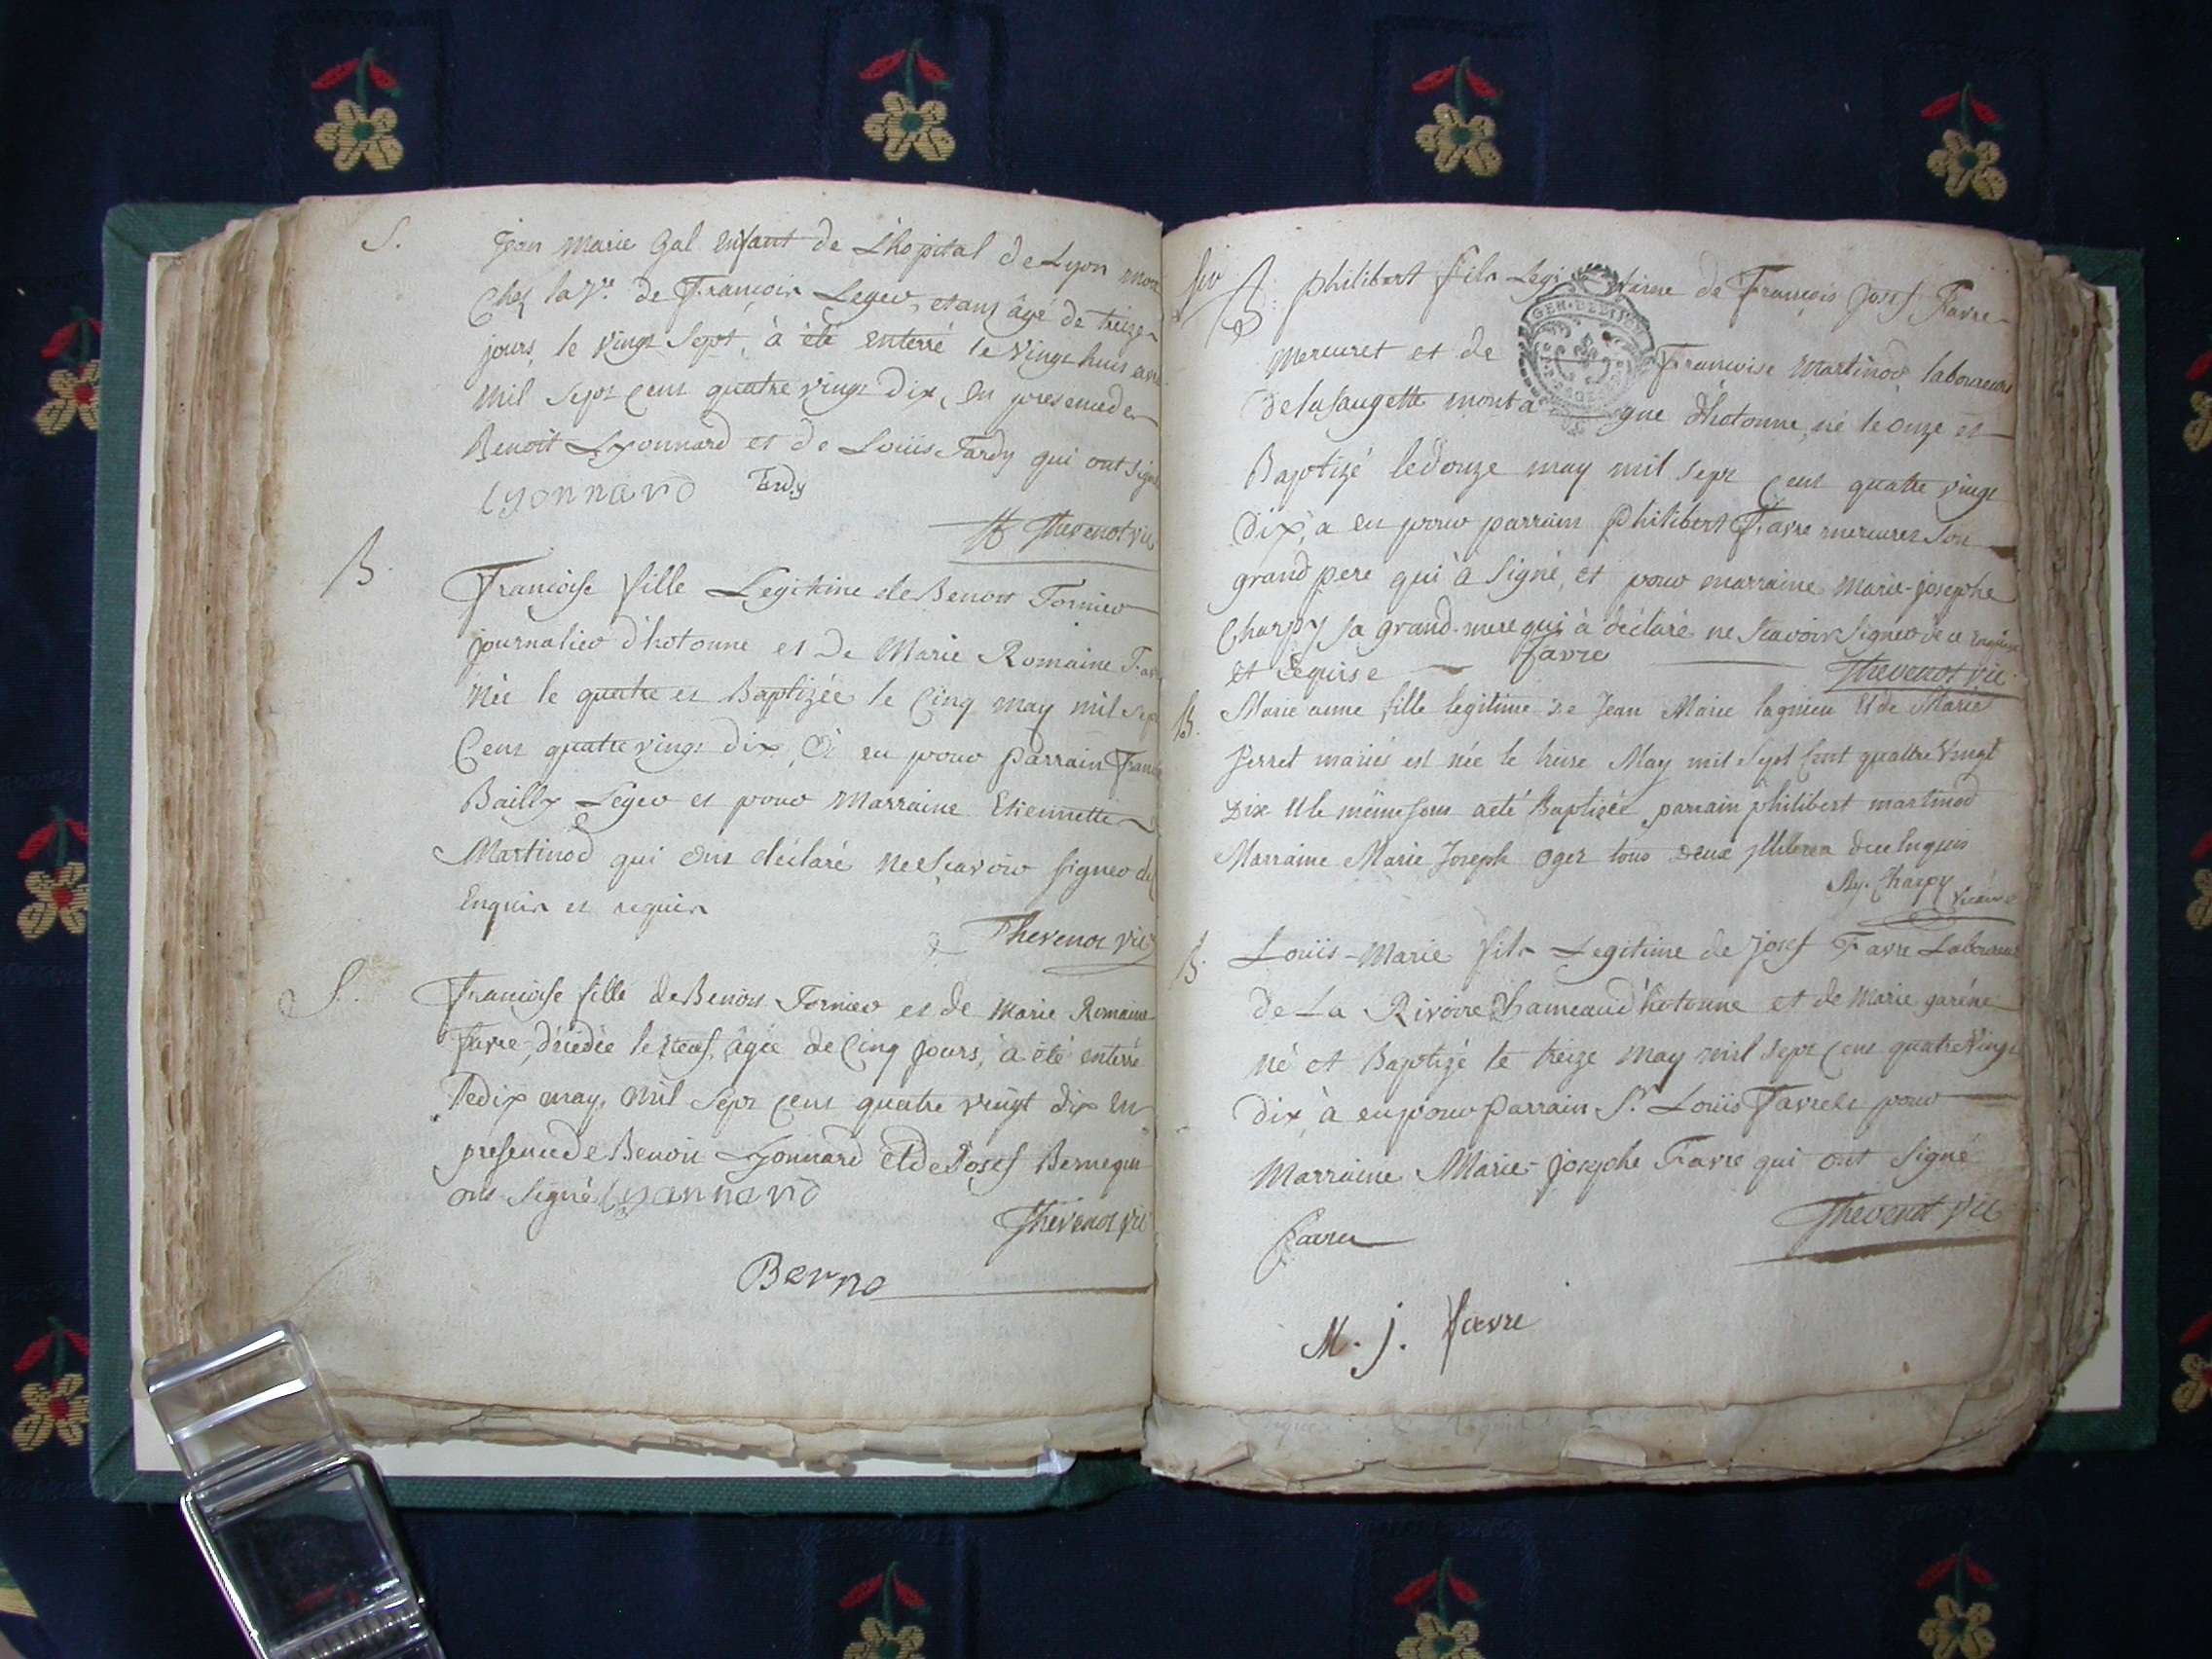 S.
Jean Marie Gal enfant de L'hopital de Lyon mort
chez la Ve. de François Leger, etant âgé de treize
jours, le vingt Sept, à èté enterré le Vingt huit avril
mil Sept cent quatre vingt dix, en presence de
Benoit Lyonnard et de Loüis Tardy qui ont signé
Lyonnard Tardy
Thevenot vic
B.
Francoise fille Legitime de Benoit Tornier
journalier d'hotonne et de Marie Romaine Fav
Née le quatre et Baptizée le Cinq may mil Sept
Cent quatre vingt dix, à eu pour parrain Franc
Bailly Leger et pour Marraine Etiennette
Martinod qui ont déclaré ne sçavoir signer de
Enquis et requis
Thevenot vic
S.
Francoise fille de Benoit Tornier et de Marie Romaine
Favre, décédée le neuf, âgée de Cinq Jours, a été enterré
le dix may mil Sept cent quatre vingt dix en
presence de Benoit Lyonnard et de Josef Berne qui
ont Signé Lyonnard
Thevenot vic
Berne
B. philibert fils Legitime de François Josef Favre
mercuret et de Francoise Martinod laboureurs
de la saugette montagne d'hotonne, né le onze et
Baptizé le douze may mil sept cent quatre vingt
dix, a eu pour parrain Philibert Favre mercuret Son
grand pere qui à Signé, et pour marraine Marie-josephe
Charpy sa grand-mere qui à déclaré ne Scavoir Signer de ce enquise
et requise Favre Thevenot vic
B.
Marie anne fille legitime de Jean Marie lagnieu et de Marie
Perret mariés est née le treize May mil Sept Cent quattre Vingt
Dix et le même jour a eté Baptizée, parrain philibert martinod
Marraine Marie Joseph Oger tous deux de ce Enquis
Charpy Vicaire
B.
Loüis-Marie fils Legitime de Josef Favre Laboureur
de La Rivoire hameau d'hotonne et de Marie garéne
né et Baptizé le treize may mil Sept cent quatre vingt
dix, à eu pour parrain Sr. Loüis Favre et pour
Marraine Marie-josephe Favre qui ont Signé
Thevenot vic
Favre
M. j. favre